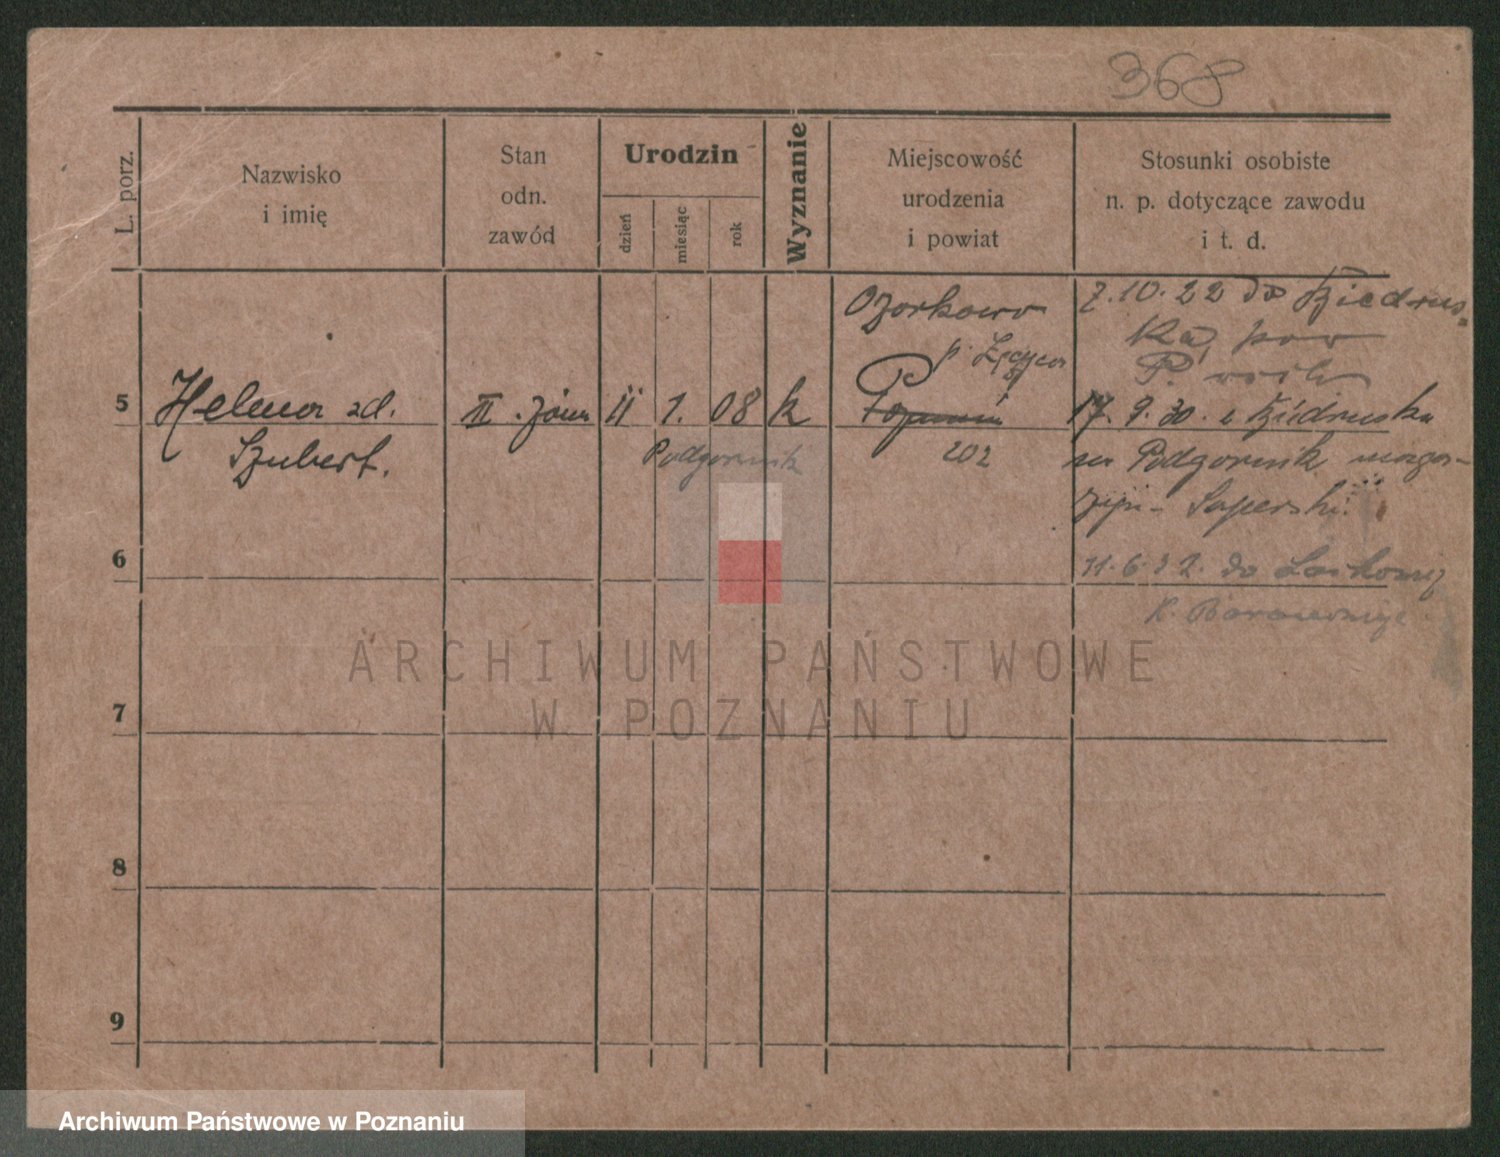 368
L. porz.
Nazwisko
i imię
Stan
odn.
zawód
Urodzin
dzień
miesiąc
rok
Wyznanie
Miejscowość
urodzenia
i powiat
Stosunki osobiste
n. p. dotyczące zawodu
i t. d.
Ozorkowo
7.10.22 do Biedrus-
ka, pow
P.
5
Helena zd.
Szubert.
III. żona
11
1.
08
k
Poznań
202
Podgornik
17. 9. 30. z Biedruska
Podgornik
Saperski
6
do
7
8
9
ARCHIWUM PAŃSTWOWE
W POZNANIU
Archiwum Państwowe w Poznaniu